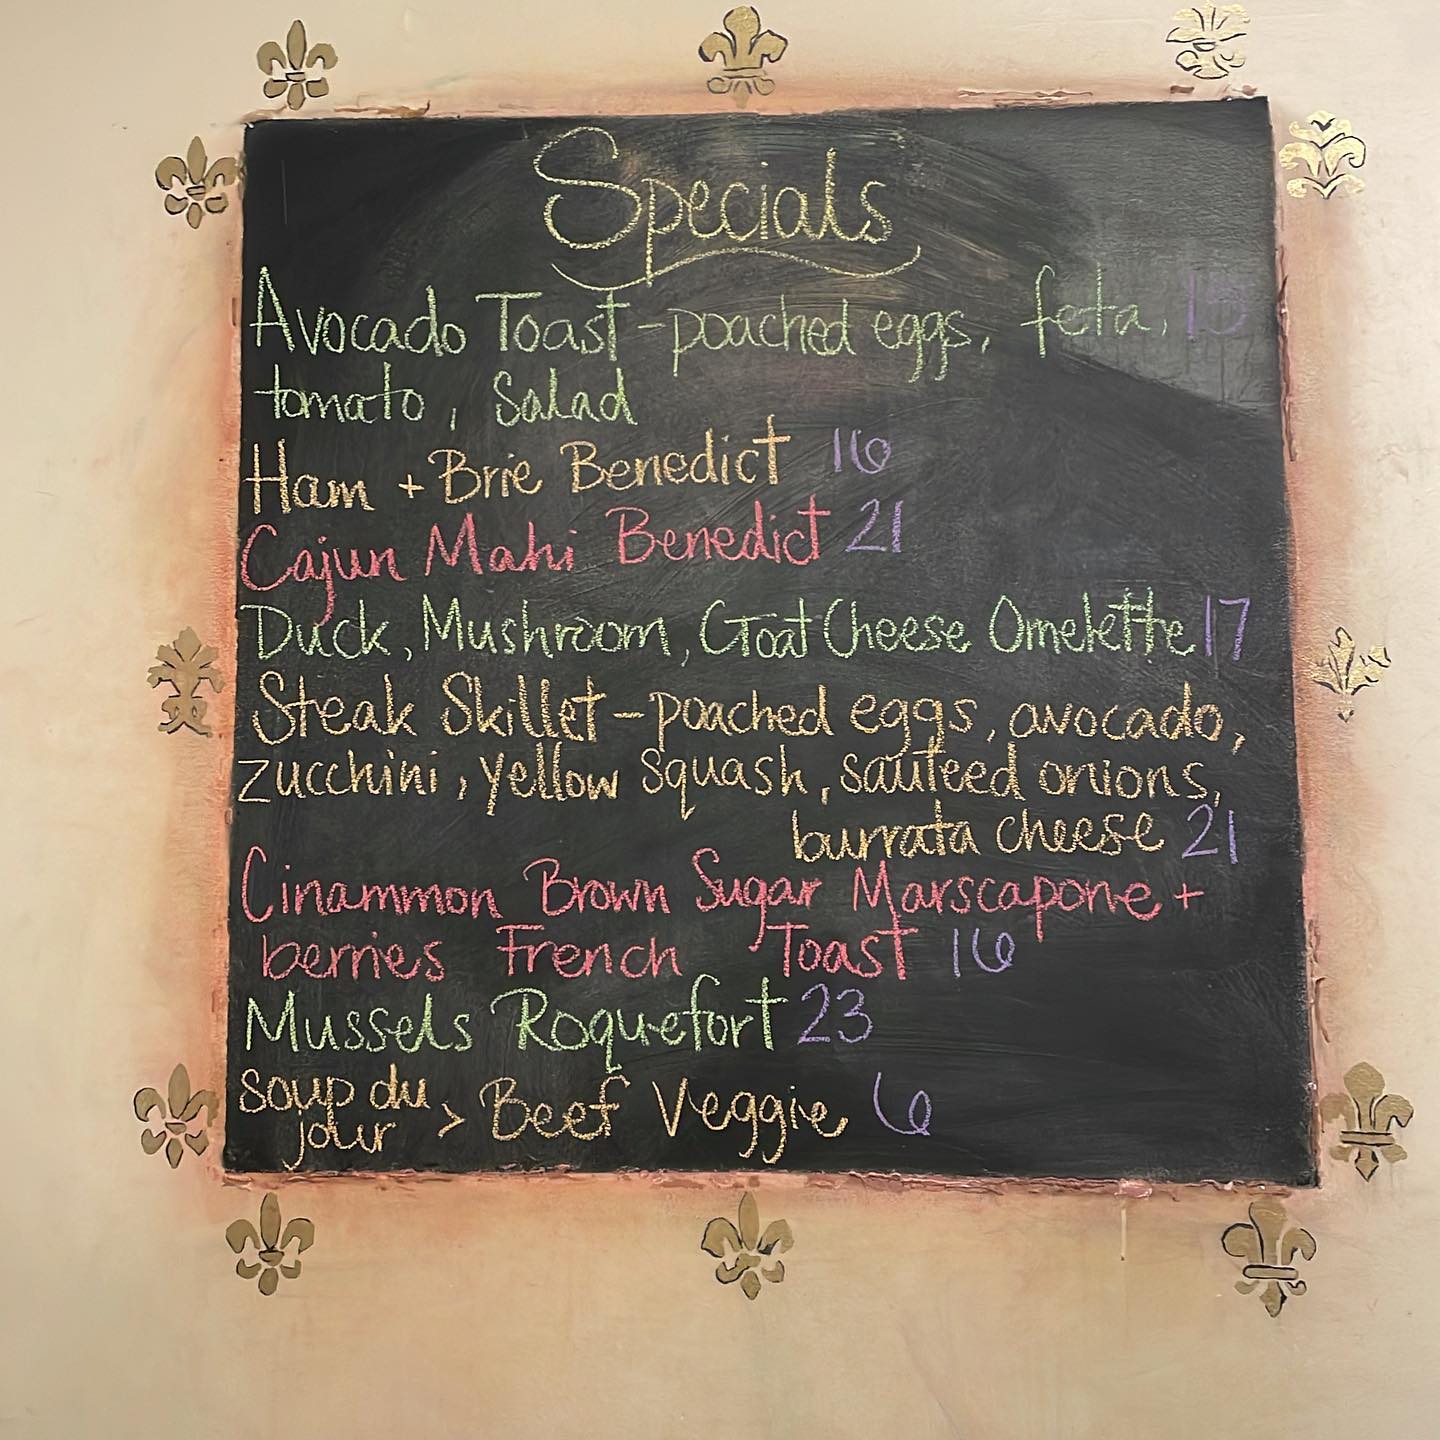 Specials
Avocado Toast - poached eggs, feta,
tomato, Salad
Ham + Brie Benedict 16
Cajun Mahi Benedict 21
Duck, Mushroom, Goat Cheese Omelette 17
Steak Skillet - poached eggs, avocado,
zucchini, yellow squash, sauteed onions,
burrata cheese 21
Cinammon Brown Sugar Marscapone +
berries French Toast 16
Mussels Roquefort 23
soup du jour > Beef Veggie 6